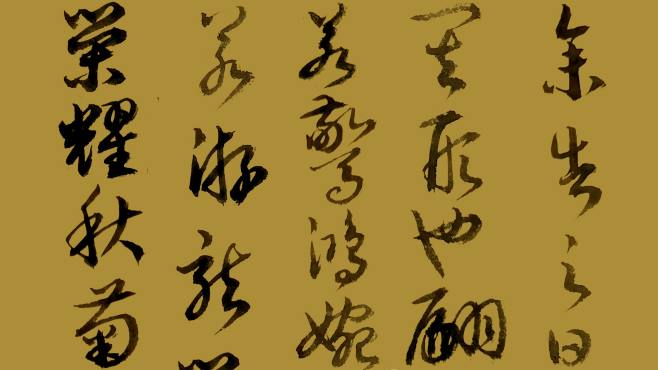 余告之曰
其形也翩
若驚鴻婉
若游龍
榮耀秋菊